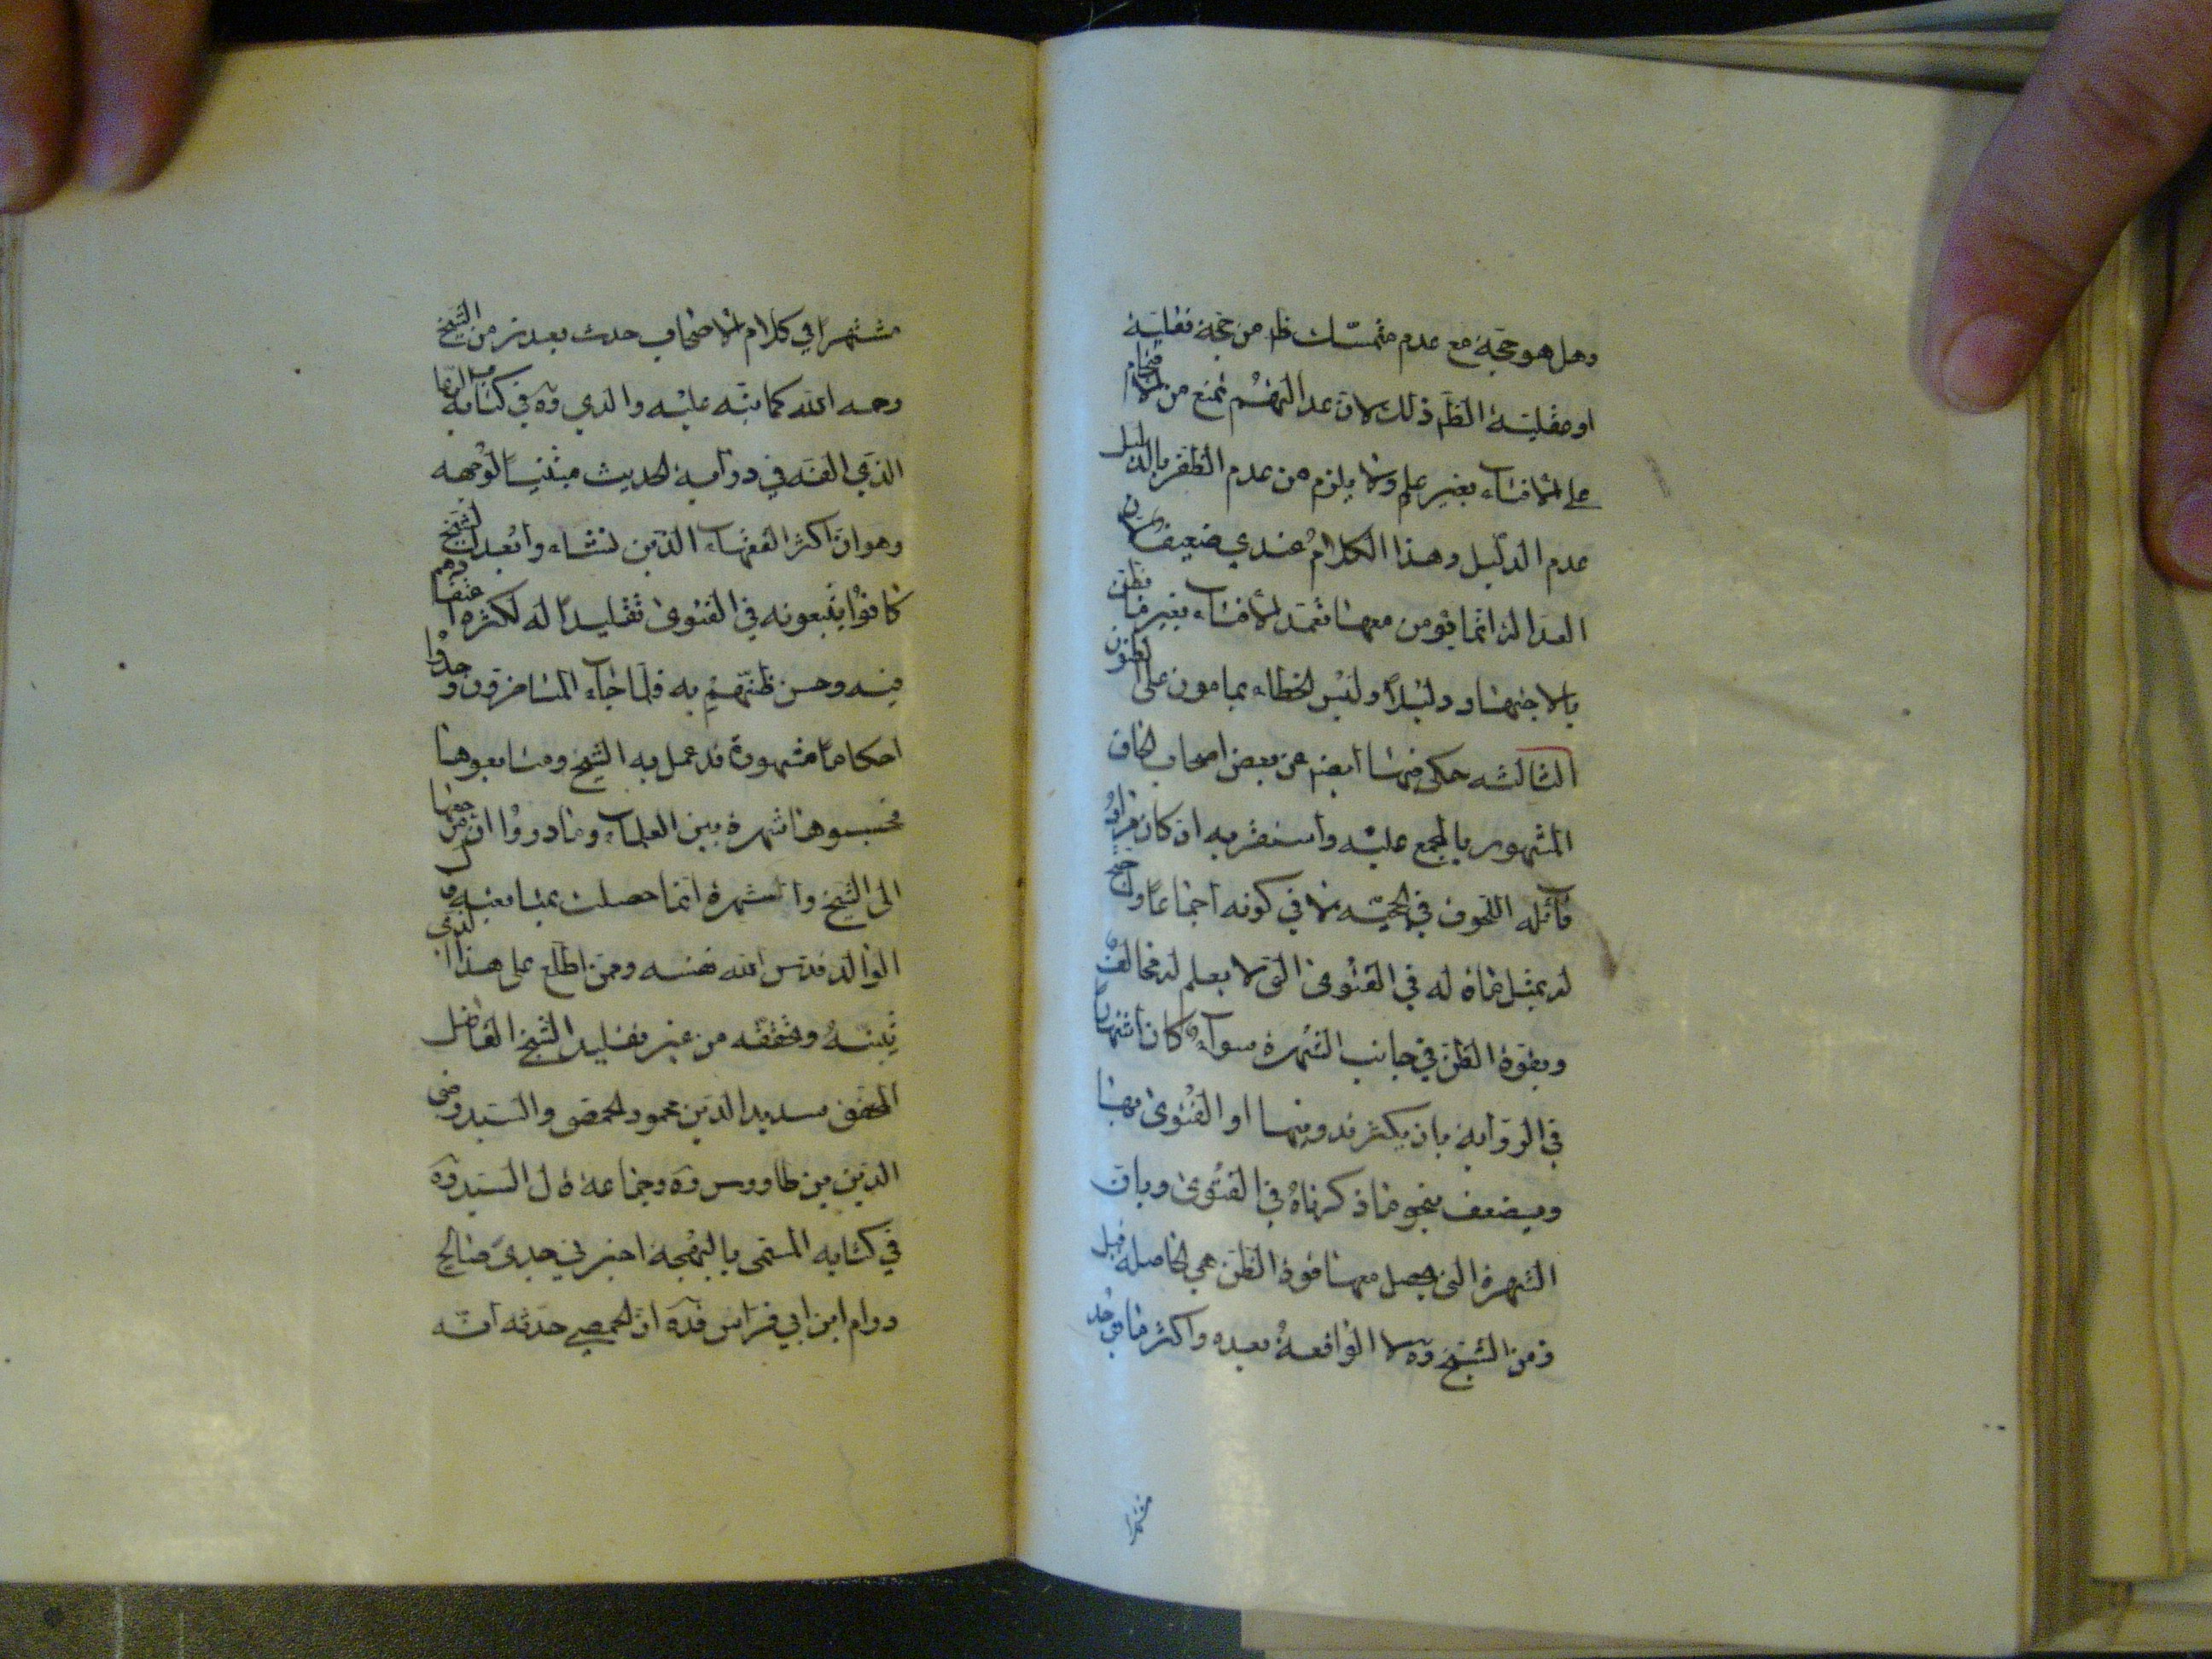 وهل هو حجة مع عدم متمسك ظ من حجة نقلية
او عقلية الظ ذلك لان عدالتهم تمنع من الاقتحام
على الافتاء بغير علم ولا يلزم من عدم الظفر بالدليل
عدم الدليل وهذا الكلام عندي ضعيف لان
العدالة انما يؤمن معها تعمد الافتاء بغير ما يظن
بالاجتهاد دليلاً وليس الخطاء بمامون على الظنون
الثالثه حكى فيها ايضم عن بعض اصحاب الحاق
المشهور بالمجمع عليه واستقر به ان كان مراد
قائله اللحوق في الحجيّه لا في كونه اجماعاً واحتج
له بمثل ما قاله في الفتوى التي لا يعلم لها مخالف
وبقوة الظن في جانب الشهرة سوآء كان اشتهاراً
في الرواية بان يكثر تدوينها او الفتوى بها
ويضعف بنحو ما ذكرناه في الفتوى وبان
الشهرة التي يحصل معها قوة الظن هي الحاصلة قبل
زمن الشيخ ره لا الواقعة بعده واكثر ما يوجد
مشتهرا
مشتهراً في كلام الاصحاب حدث بعد زمن الشيخ
رحمه الله كما نبّه عليه والدي ره في كتاب الرعاية
الذي الفه في دراية الحديث مبيّناً لوجهه
وهو ان اكثر الفقهاء الذين نشاءوا بعد الشيخ
كانوا يتبعونه في الفتوى تقليداً له لكثرة اعتقادهم
فيه وحسن ظنّهم به فلما جاء المتاخرون وجدوا
احكاماً مشهورة قد عمل به الشيخ ومتابعوها
فحسبوها شهرة بين العلماء وما دروا ان مرجعها
الى الشيخ وان الشهرة انما حصلت بمتابعته قال
الوالد قدس الله نفسه وممّن اطلع على هذا الذي
بيّنته وتحققته من غير تقليد الشيخ الفاضل
المحقق سديد الدّين محمود الحمصي والسيّد رضى
الدّين بن طاووس ره وجماعة قال السيّد ره
في كتابه المسمى بالبهجه اخبرني جدى صالح
ورام ابن ابي فراس قده انّ الحمصي حدثه انّه